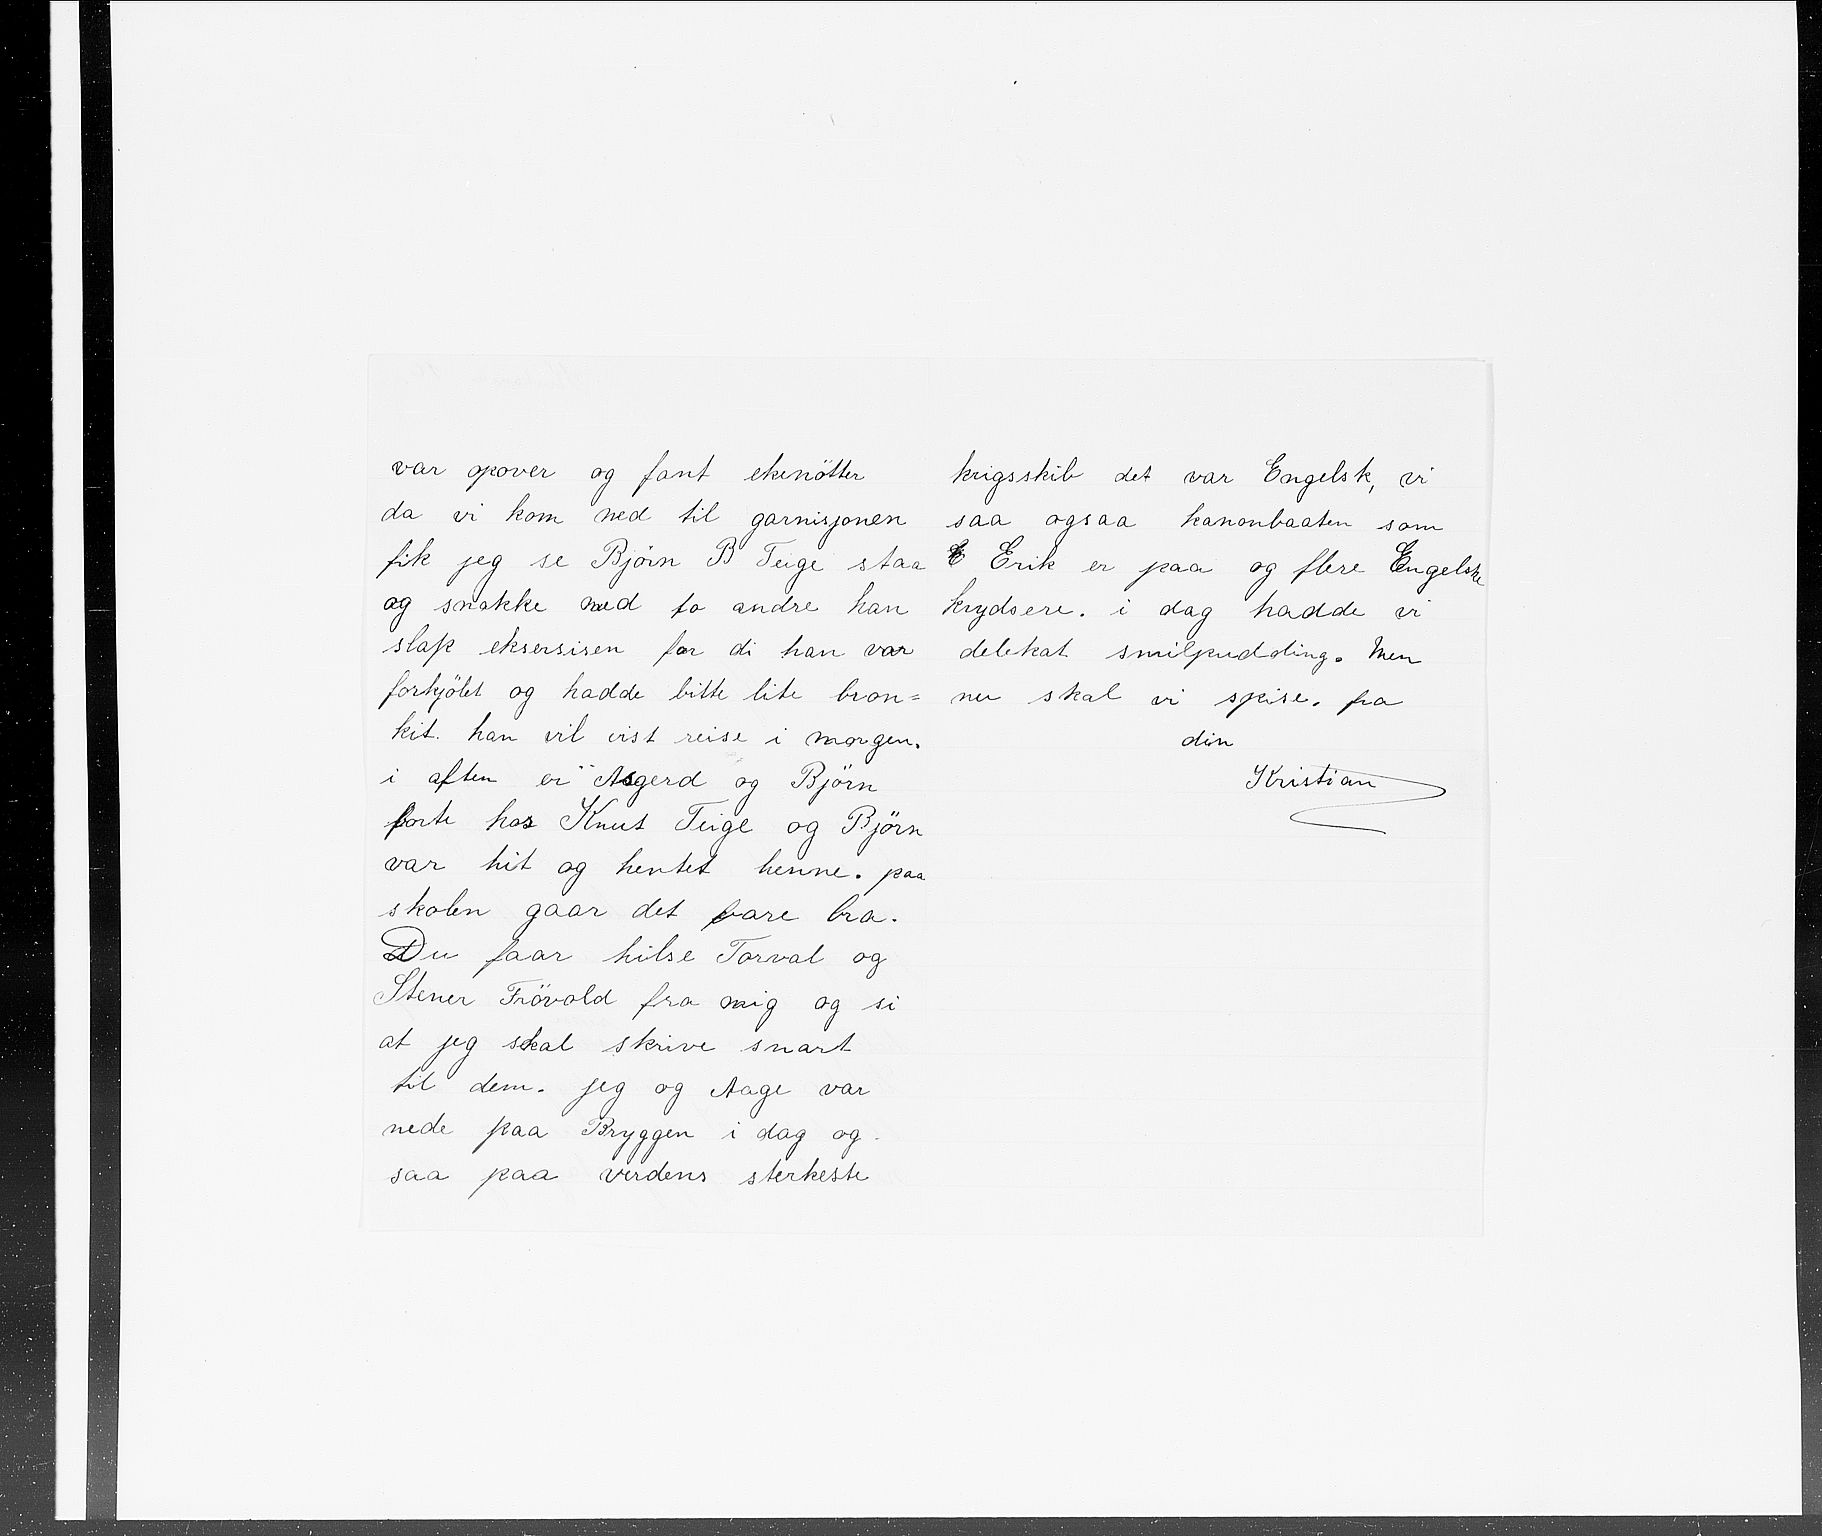 var opover og fant ekenötter
da vi kom ned til garnisjonen
fik jeg se Bjørn B Teige staa
og snakke med to andre han
slap eksersisen for di han var
forkjölet og hadde bitte lite bron=
kit. han vil vist reise i morgen.
i aften er Asgerd og Björn
borte hos Knut Teige og Björn
var hit og hentet henne. paa
skolen gaar det bare bra.
Du faar hilse Torval og
Stener Frövold fra mig og si
at jeg skal skrive snart
til dem. jeg og Aage var
nede paa Bryggen i dag og
saa paa verdens sterkeste
krigsskib det var Engelsk, vi
saa ogsaa kanonbaaten som
Erik er paa og flere Engelske
krydsere. i dag hadde vi
delekat smilpudding. Men
nu skal vi spise. fra
din
Kristian